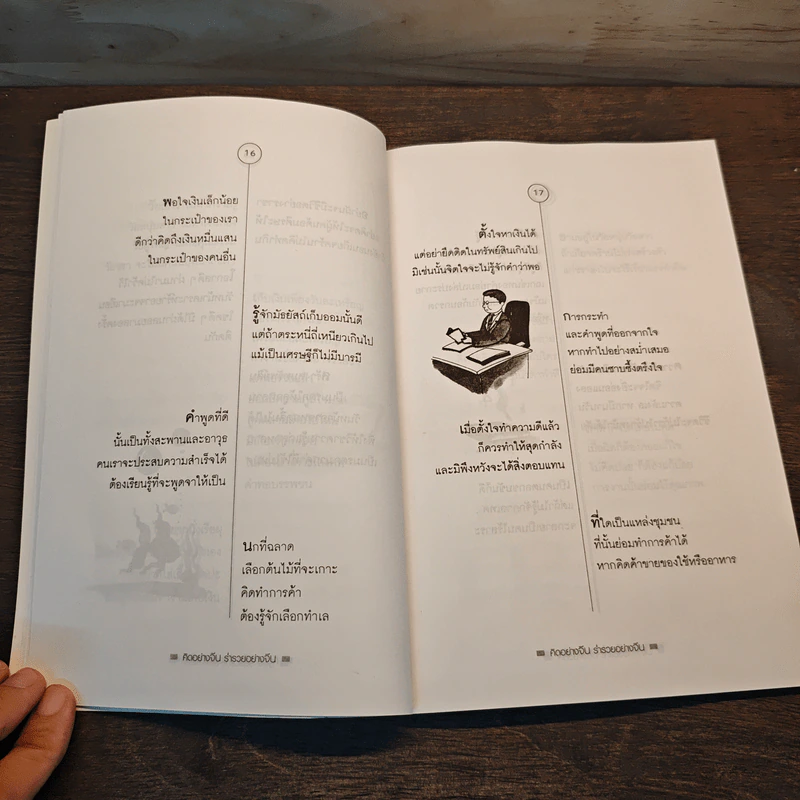 16
พอใจเงินเล็กน้อย
ในกระเป๋าของเรา
ดีกว่าคิดถึงเงินหมื่นแสน
ในกระเป๋าของคนอื่น
รู้จักมัธยัสถ์เก็บออมนั้นดี
แต่ถ้าตระหนี่ถี่เหนียวเกินไป
แม้เป็นเศรษฐีก็ไม่มีบารมี
คำพูดที่ดี
นั้นเป็นทั้งสะพานและอาวุธ
คนเราจะประสบความสำเร็จได้
ต้องเรียนรู้ที่จะพูดจาให้เป็น
นกที่ฉลาด
เลือกต้นไม้ที่จะเกาะ
คิดทำการค้า
ต้องรู้จักเลือกทำเล
คิดอย่างจีน ร่ำรวยอย่างจีน
17
ตั้งใจหาเงินได้
แต่อย่ายึดติดในทรัพย์สินเกินไป
มิเช่นนั้นจิตใจจะไม่รู้จักคำว่าพอ
การกระทำ
และคำพูดที่ออกจากใจ
หากทำไปอย่างสม่ำเสมอ
ย่อมมีคนซาบซึ้งตรึงใจ
เมื่อตั้งใจทำความดีแล้ว
ก็ควรทำให้สุดกำลัง
และมิพึงหวังจะได้สิ่งตอบแทน
ที่ใดเป็นแหล่งชุมชน
ที่นั้นย่อมทำการค้าได้
หากคิดค้าขายของใช้หรืออาหาร
คิดอย่างจีน ร่ำรวยอย่างจีน